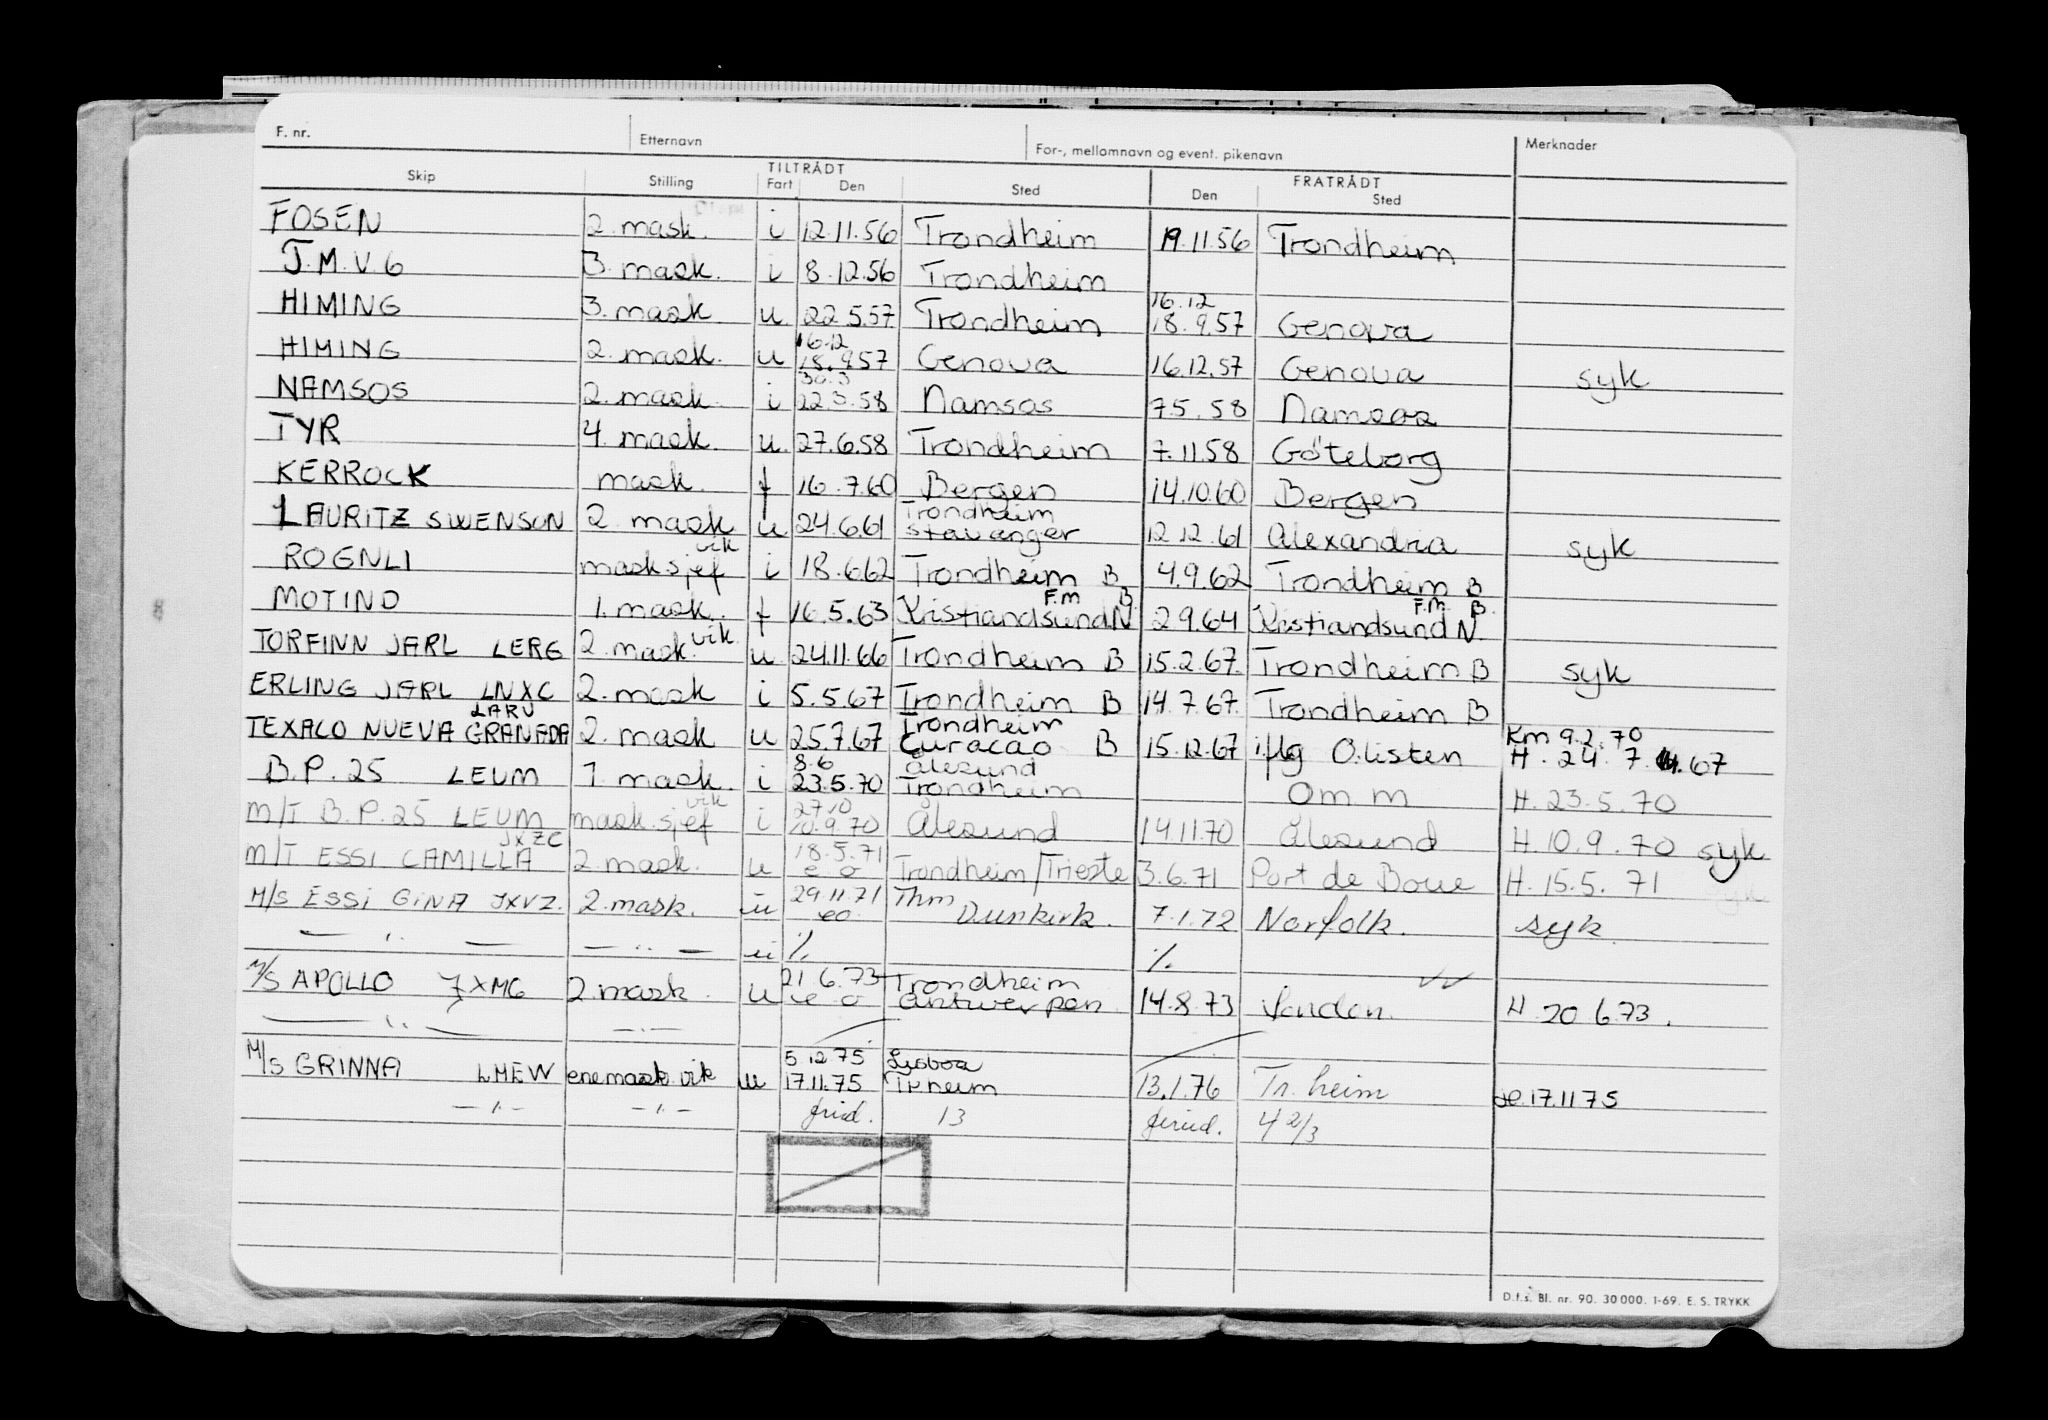 F. nr. Etternavn For-, mellomnavn og event. pikenavn Merknader
TILTRÅDT FRATRÅDT
Skip Stilling Fart Den Sted Den Sted
FOSEN 2. mask. i 12.11.56 Trondheim 19.11.56 Trondheim
J.M.V.6 3. mask. i 8.12.56 Trondheim
16.12
HIMING 3. mask u 22.5.57 Trondheim 18.9.57 Genova
16.12
HIMING 2. mask. u 18.9.57 Genova 16.12.57 Genova syk
30.3
NAMSOS 2. mask. i 22.3.58 Namsos 7.5.58 Namsos
TYR 4. mask. u. 27.6.58 Trondheim 7.11.58 Göteborg
KERROCK mask. f 16.7.60 Bergen 14.10.60 Bergen
Trondheim
LAURITZ SWENSON 2. mask u 24.6.61 Stavanger 12.12.61 Alexandria syk
vik
ROGNLI mask sjef i 18.6.62 Trondheim B 4.9.62 Trondheim B
F.m B. F.M. B.
MOTIND 1. mask. f 16.5.63 Kristiandsund N 2.9.64 Kristiandsund N
vik
TORFINN JARL LERG 2. mask. u 24.11.66 Trondheim B 15.2.67. Trondheim B syk
ERLING JARL LNXC 2. mask i 5.5.67 Trondheim B 14.7.67. Trondheim B
LARV Trondheim Km 9.2.70
TEXACO NUEVA GRANADA 2. mask u 25.7.67 Curacao B 15.12.67 iflg O.listen H. 24.7. 67
8.6 Ålesund
B.P. 25 LEUM 1. mask. i 23.5.70 Trondheim Om m H. 23.5.70
vik 27.10
M/T B.P. 25 LEUM mask.sjef i 10.9.70 Ålesund 14.11.70 Ålesund H. 10.9.70 syk
JXZC 18.5.71
M/T ESSI CAMILLA 2. mask. u e o Trondheim/Trieste 3.6.71 Port de Boue H. 15.5.71
29.11.71 Thm
M/S ESSI GINA JXVZ. 2. mask. u eo Dunkirk. 7.1.72 Norfolk. syk.
— " — — " — u % %
21.6.73 Trondheim
M/S APOLLO JXMG 2. mask. u e o Antwerpen 14.8.73 London. H 20.6.73.
— " — — " —
5.12.75 Lisboa
M/S GRINNA LMEW enemask.vik u 17.11.75 Tr heim 13.1.76 Tr. heim H. 17.11.75
— " — — " — 13 4 2/3
D.f.s. Bl. nr. 90. 30 000. 1-69. E. S. TRYKK